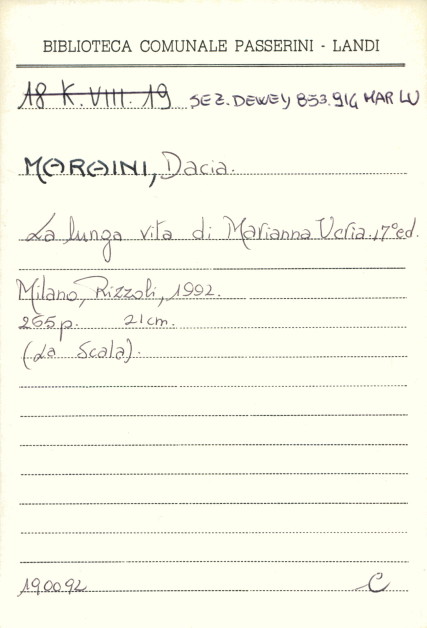 BIBLIOTECA COMUNALE PASSERINI - LANDI
18 K. VIII. 19 SEZ. DEWEY 853.914 MAR LU
MARAINI, Dacia.
La lunga vita di Marianna Ucria. 17° ed.
Milano, Rizzoli, 1992.
265 p. 21 cm.
(La Scala).
190092 C